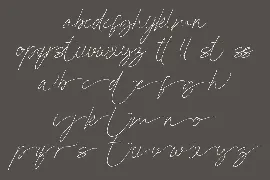 abcdefghijklmn
opqrstuvwxyz tt ll st ss
a b c d e f g h
i j k l m n o
p q r s t u v w x y z